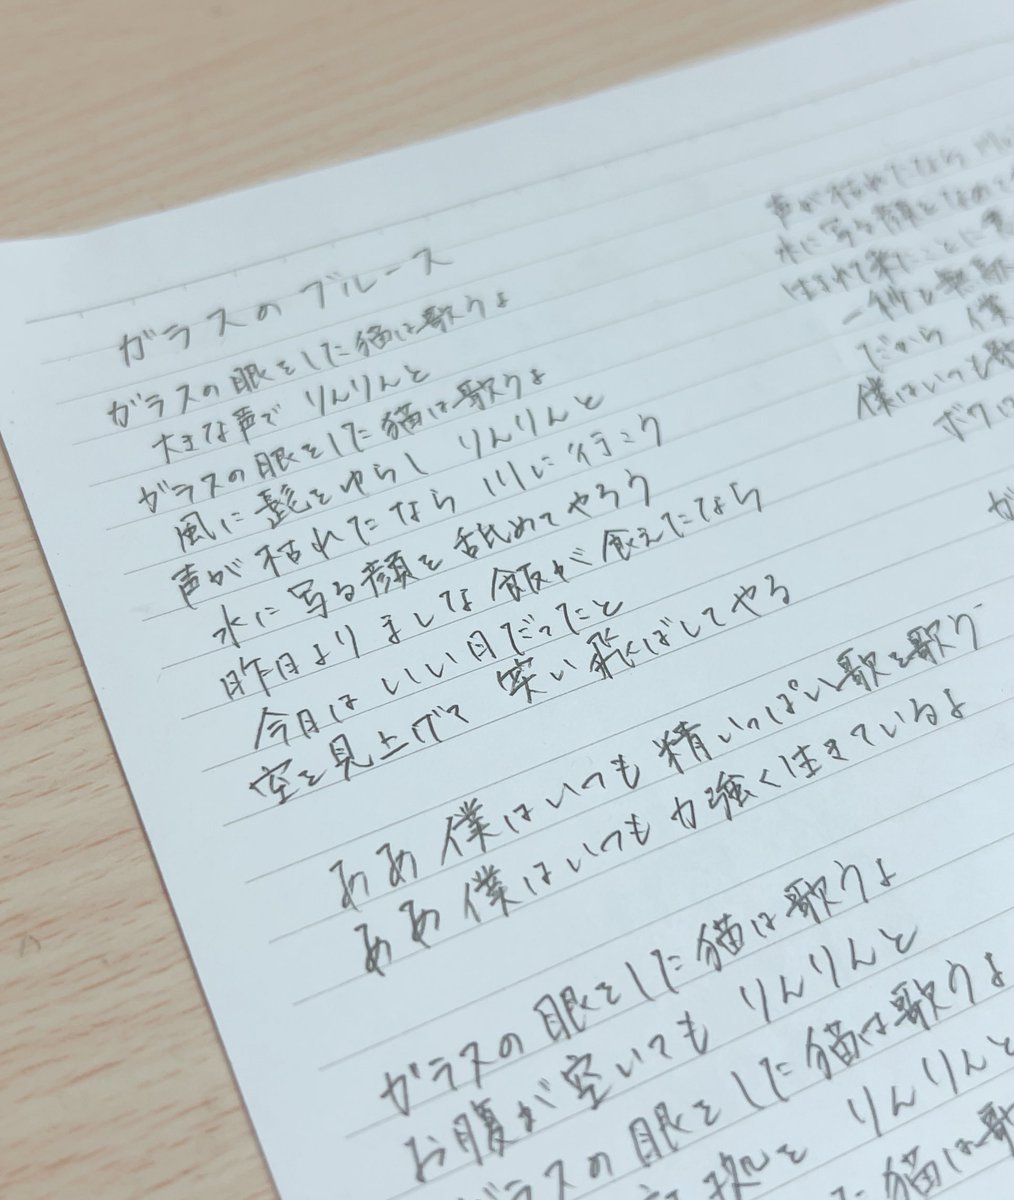 ガラスのブルース
ガラスの眼をした猫は歌うよ
大きな声で りんりんと
ガラスの眼をした猫は歌うよ
風に髭をゆらし りんりんと
声が枯れたなら川に行こう
水に写る顔を舐めてやろう
昨日よりましな飯が食えたなら
今日はいい日だったと
空を見上げて 笑い飛ばしてやる
ああ 僕はいつも 精いっぱい歌を歌う
ああ 僕はいつも 力強く生きているよ
ガラスの眼をした猫は歌うよ
お腹が空いても りんりんと
ガラスの眼をした猫は歌うよ
を りんりんと
猫は歌
声が枯れたなら川
水に写る顔を
生まれて来たことに意
一個も無
だから 僕
僕はいつも
ボクは
ガ